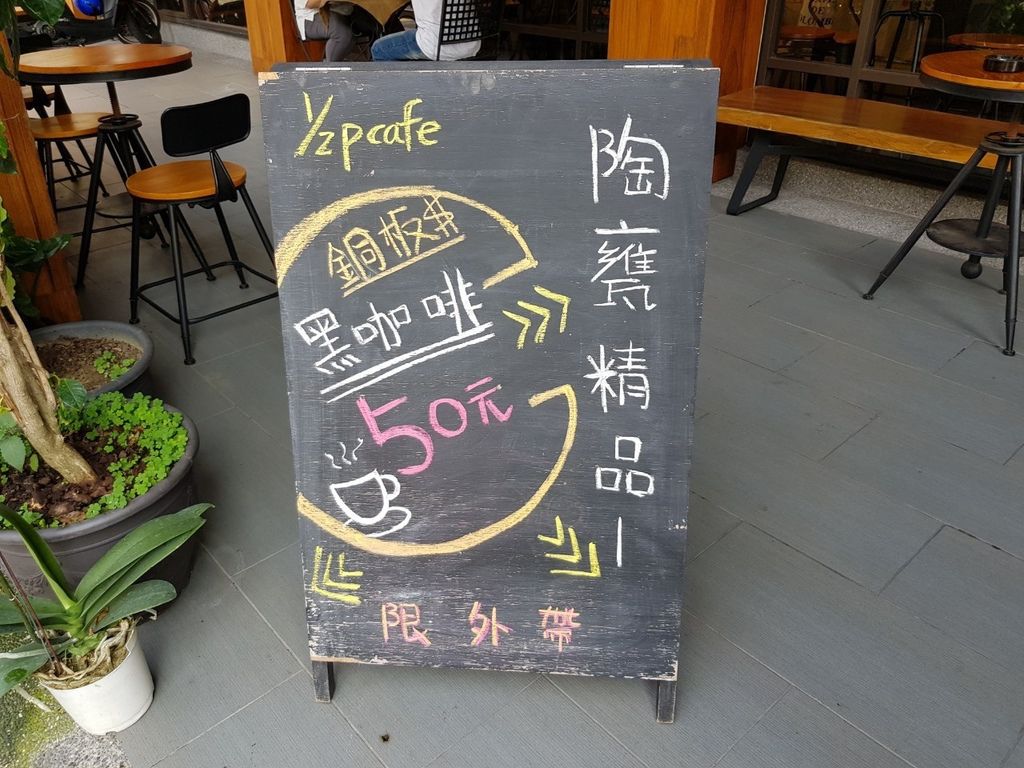 ½ p cafe
銅板$
黑咖啡
50元
陶甕精品|
限外帶